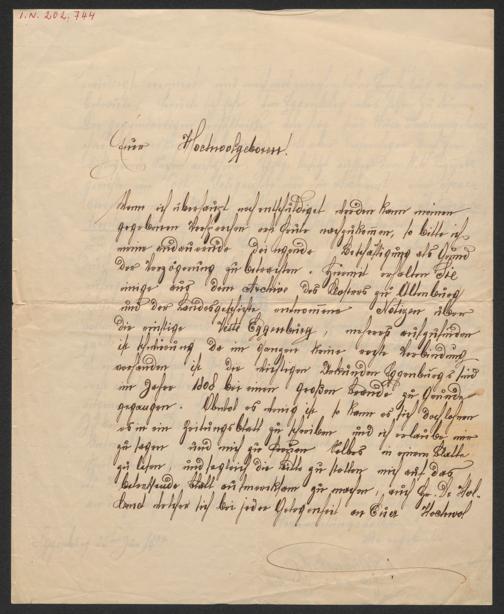 I.N. 202.744
Euer Hochwolgeboren!
Wenn ich überhaupt noch entschuldiget werden kann meinem
gegebenen Versprechen erst heute nachzukommen, so bitte ich
meine andauernde dringende Beschäftigung als Grund
der Verzögerung zu betrachten. Hiermit erhalten Sie
einige aus dem Archive des Klosters zu Altenburg
und der Landesgeschichte entnommene Notizen über
die einstige Veste Eggenburg, mehreres aufzufinden
ist schwierig da im ganzen keine rechte Verbindung
vorhanden ist die wichtigen Urkunden Eggenburgs sind
im Jahre 1808 bei einem großen Brande zu Grunde
gegangen. Obwol es wenig ist, so kann es sich doch lohnen
es in ein Zeitungsblatt zu schreiben und ich erlaube mir
zu sagen und mich zu freuen selbes in einem Blatte
zu lesen, und sogleich die Bitte zu stellen mich auf das
betreffende Blatt aufmerksam zu machen, auch Hr. Dr.
welcher sich bei jeder Gelegenheit an Euer Hochwol